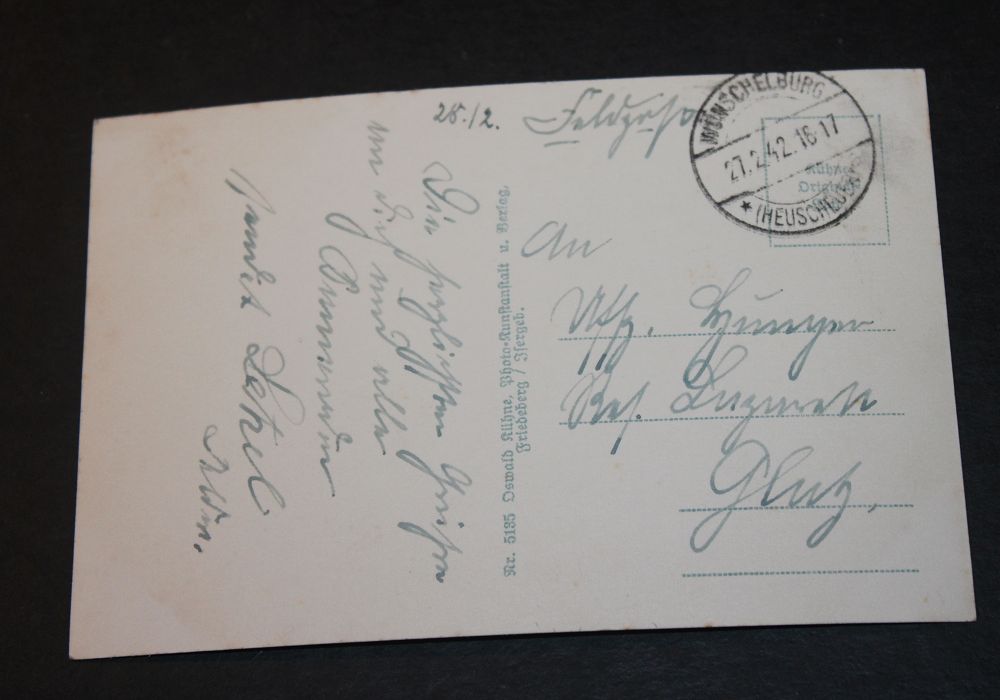 26./2.
Die herzlichsten Grüße
an dich und alle
Kameraden
sendet
Feldpost
WÜNSCHELBURG
27.2.42.16-17
★ (HEUSCHEUER)
Kühne
Original
An
Uffz. Hunger
Res. Lazarett
Glatz.
Nr. 5135 Oswald Kühne, Photo-Kunstanstalt u. Verlag,
Friedeberg / Isergeb.